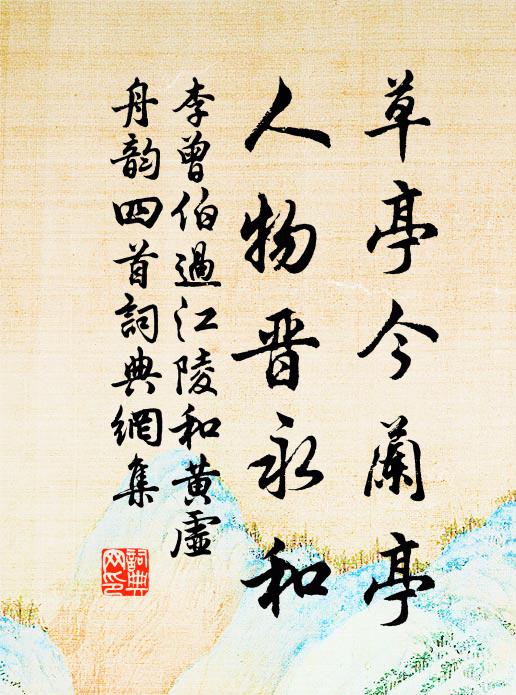 草亭今蘭亭
人物晋永和
李曾伯過江陵和黄虛
舟韵四首詞典網集